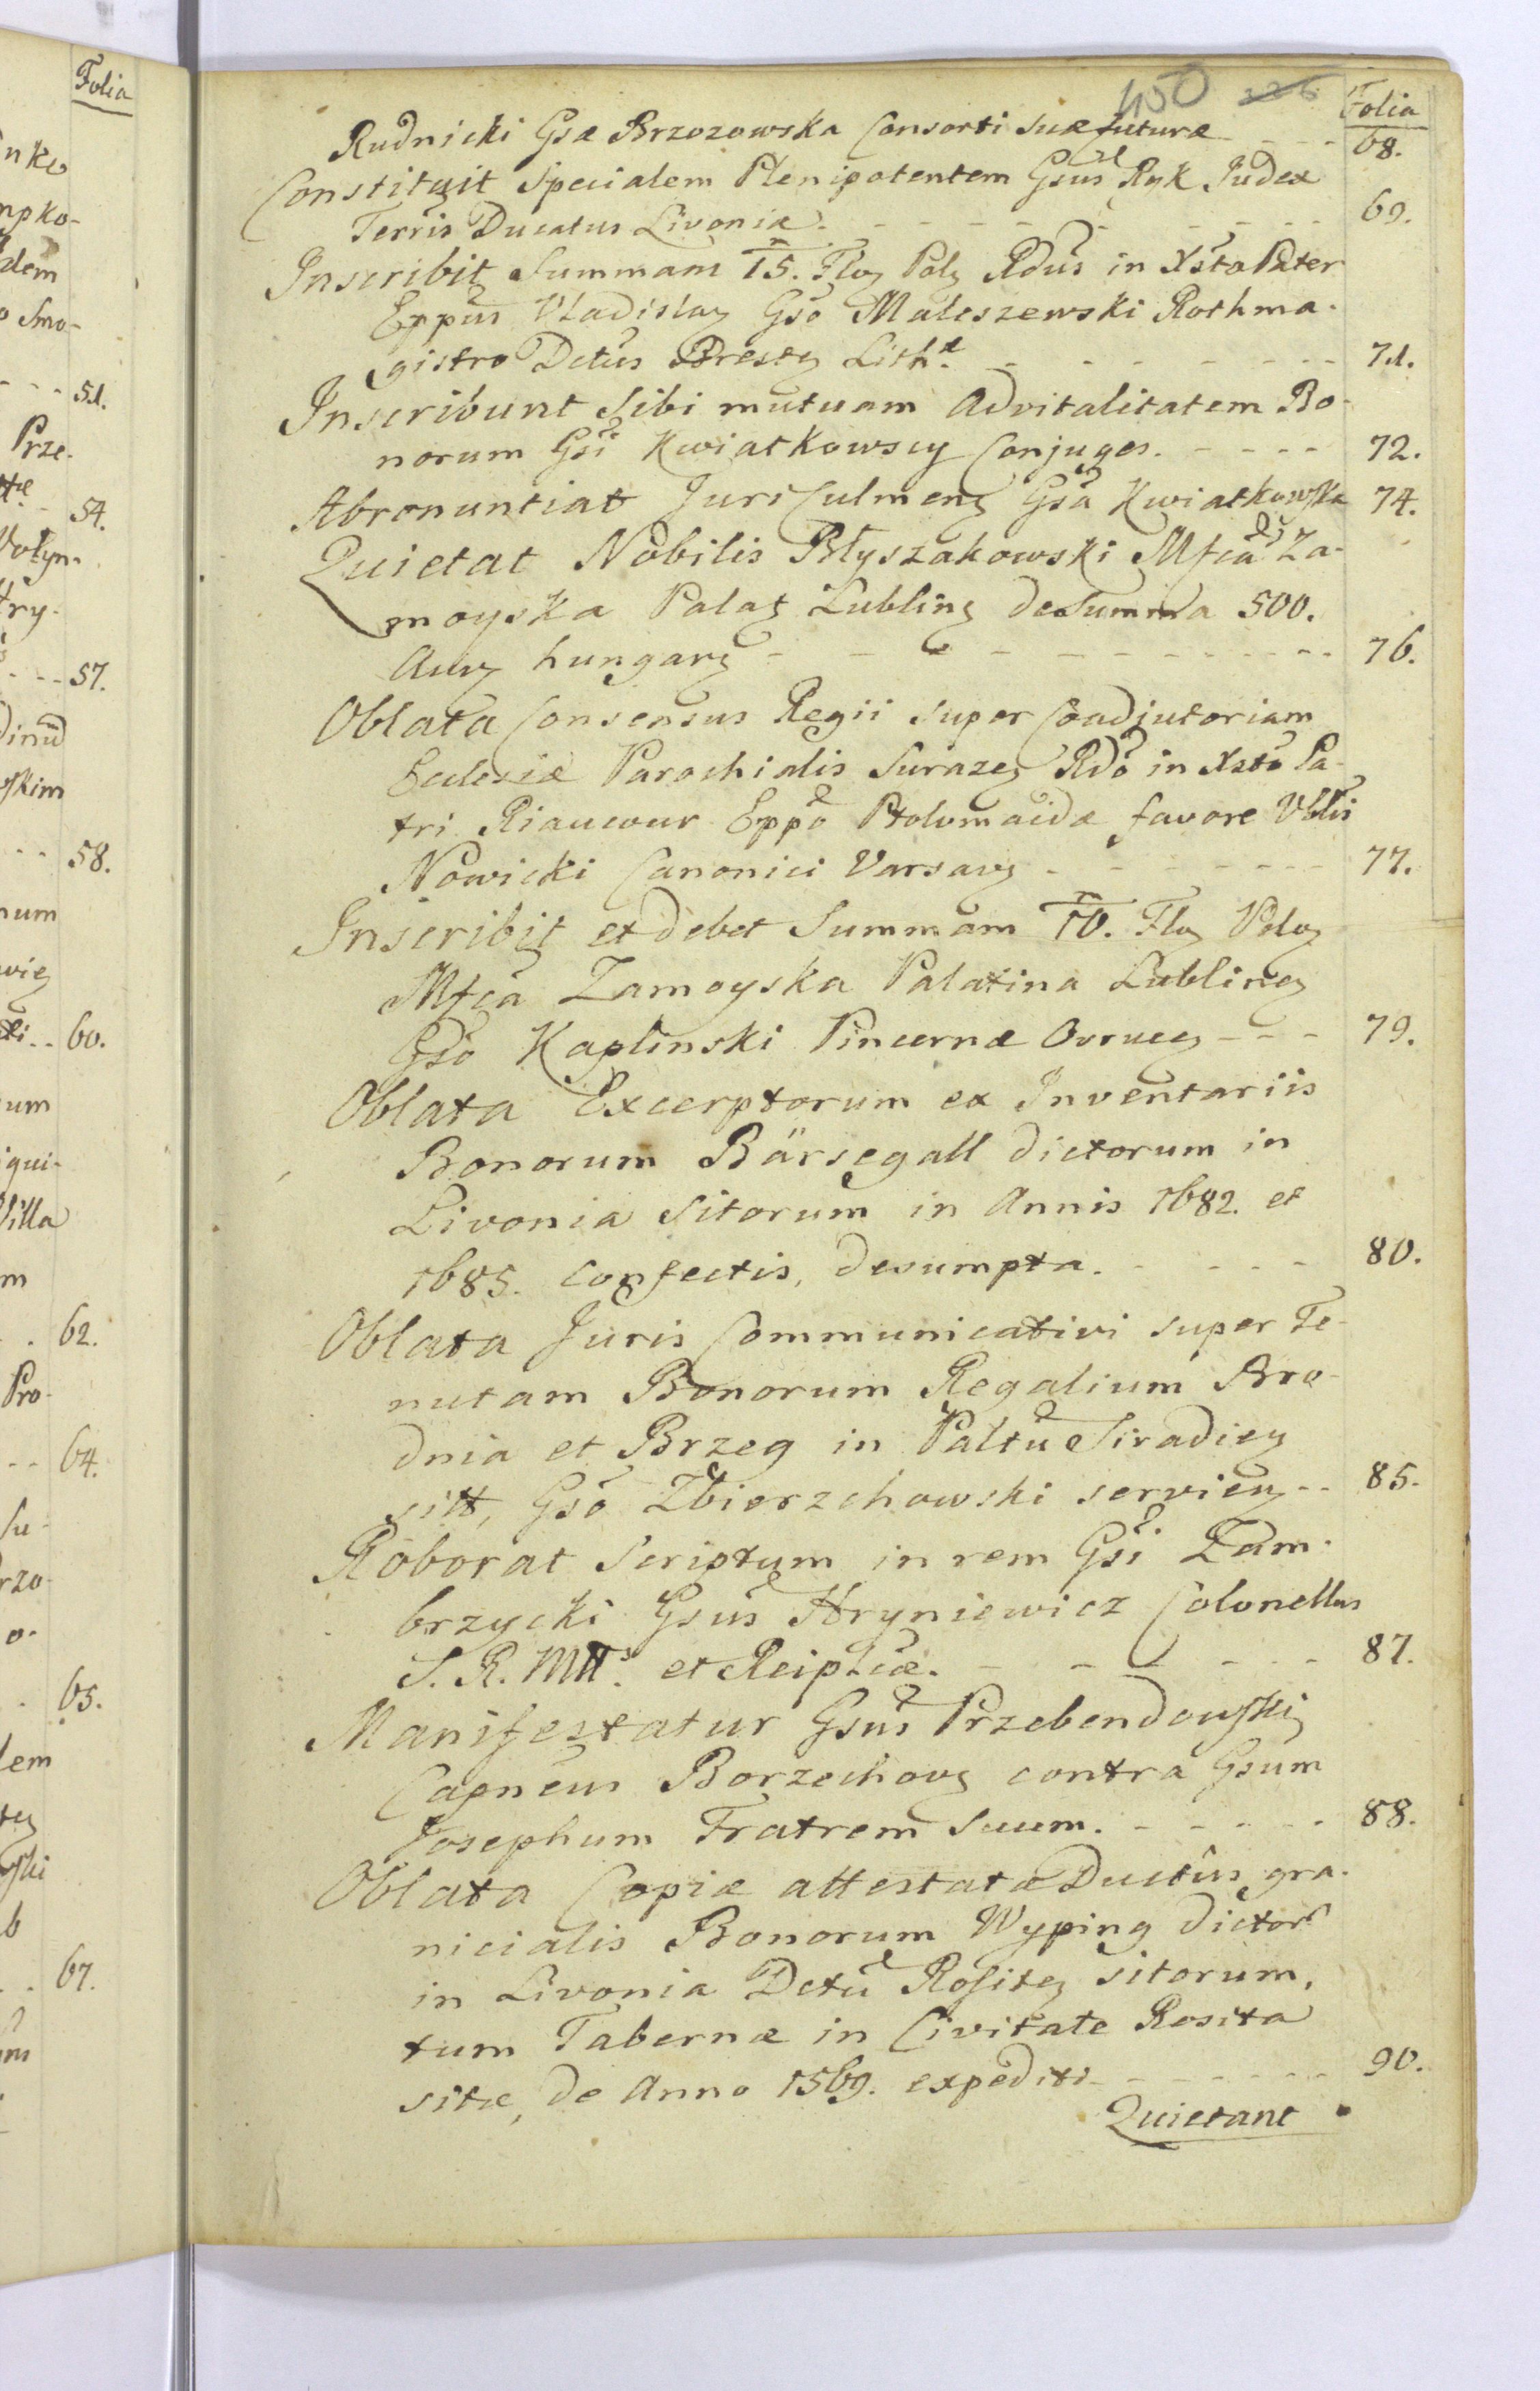 450 226
Folia
Rudnicki Gsæ Brzozowska Consorti suæ futuræ - - - 68.
Constituit Specialem Plenipotentem Gsus Ryk Judex
Terris Ducatus Livoniæ. - - - 69.
Inscribit Summam 15. Flor Pol Rdus in Xsto Pater
Eppus Vladislav Gso Maleszewski Rothma-
gistro Dctus Brest Lithæ. - - - 71.
Inscribunt sibi mutuam Advitalitatem Bo-
norum Gsi Kwiatkowscy Conjuges. - - - 72.
Abronuntiat Juri Culmen Gsa Kwiatkowska 74.
Quietat Nobilis Błyszakowski Mfca Za-
moyska Palat Lublin de Summa 500.
Aur hungar - - - 76.
Oblata Consensus Regii super Coadjutoriam
Eclesiæ Parochialis Suraze Rdo in Xsto Pa-
tri Riaucour Eppo Ptolomaidæ favore Vblis
Nowicki Canonici Varsav - - - 77.
Inscribit et debet Summam 10. Flo Polo
Mfca Zamoyska Palatina Lublin
Gso Kaplinski Pincernæ Ovruc - - - 79.
Oblata Excerptorum ex Inventariis
Bonorum Bärsegall dictorum in
Livonia Sitorum in Annis 1682. et
1685. confectis, desumpta. - - - 80.
Oblata Juris Communicativi super Te-
nutam Bonorum Regalium Bro-
dnia et Brzeg in Paltu Siradien
sitt, Gso Zbierzchowski servien - - 85.
Roborat Scriptum in rem Gsi Zam-
brzycki Gsus Hryniewicz Colonellus
S. R. Mtt. et Reiplicæ. - - - 87.
Manifestatur Gsus Przebendowski
Capneus Borzechov contra Gsum
Josephum Fratrem Suum. - - - 88.
Oblata Copiæ attestatæ Ductûs gra-
nicialis Bonorum Wyping dictor
in Livonia Dctu Rosite sitorum,
tum Tabernæ in Civitate Rosita
sitæ, de Anno 1569. expediti - - - 90.
Quietant
Folia
51.
Prze-
54.
57.
58.
60.
62.
Pro-
64.
65.
67.